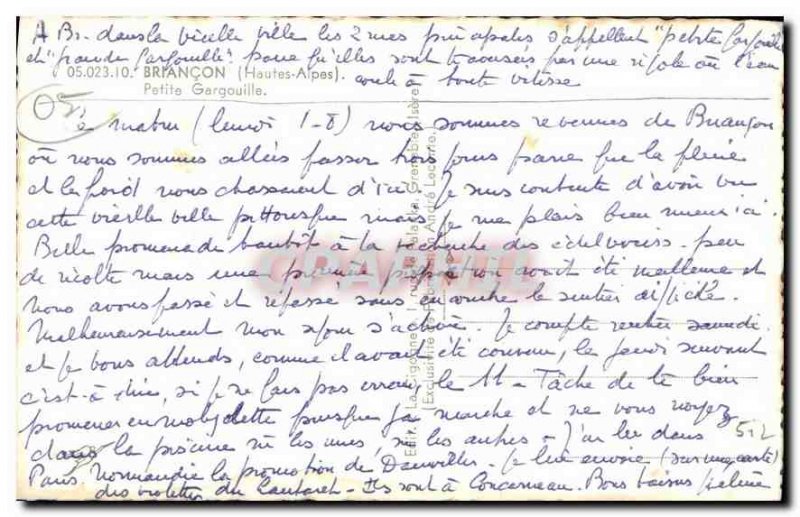 A Br. dans la vieille ville les 2 rues principales s'appellent "petite Gargouille
et "grande Gargouille" parce qu'elles sont traversées par une rigole où l'eau
05.023.10. BRIANÇON (Hautes-Alpes). coule à toute vitesse
Petite Gargouille.
05
Ce matin (lundi 1-8) nous sommes revenues de Briançon
où nous sommes allées passer trois jours parce que la pluie
et le froid nous chassaient d'ici. Je suis contente d'avoir vu
cette vieille ville pittoresque mais je me plais bien mieux ici.
Belle promenade tantôt à la recherche des edelweiss. peu
de récolte mais une première prospection avait été meilleure et
nous avons passé et repassé sans encombre le sentier difficile.
Malheureusement mon séjour s'achève. Je compte rentrer samedi
et je vous attends, comme il avait été convenu, le jeudi suivant
c'est-à-dire, si je ne fais pas erreur, le 11 - Tâche de te bien
promener en mobylette puisque ça marche et ne vous noyez
dans la piscine ni les unes, ni les autres - J'ai lu dans
Paris. Normandie la promotion de Danviller. Je lui envoie (sur une carte)
des violettes du Lautaret - Ils sont à Concarneau. Bons baisers
512
Edit. "La Cigogne", Grenoble (Isère)
(Exclusivité André Leconte)
CPAPHIL